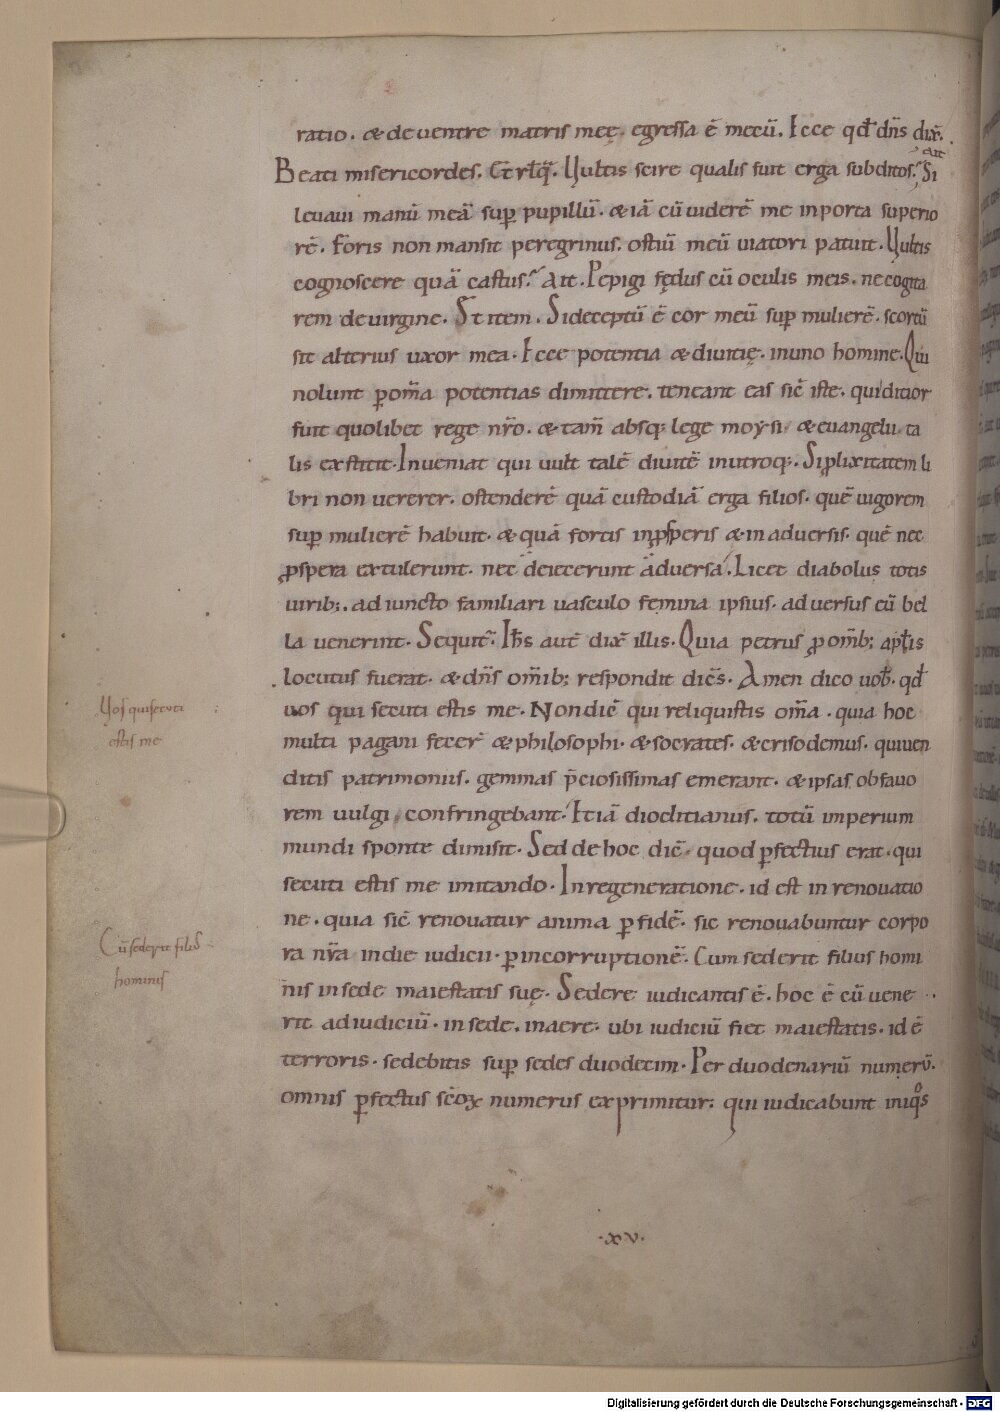 ratio. & de uentre matris meę. egressa ē mecū. Ecce qđ dn̄s dix̄.
ait
Beati misericordes. Et rłq̄. Vultis scire qualis fuit erga subditos? Si
leuaui manū meā sup pupillū. & iā cū uiderē me in porta superio
rē. Foris non mansit peregrinus. ostiū meū uiatori patuit. Vultis
cognoscere quā castus? Ait. Pepigi fędus cū oculis meis. ne cogita
rem de uirgine. Et item. Si deceptū ē cor meū sup mulierē. scortū
sit alterius uxor mea. Ecce potentia & diuitię. in uno homine. Qui
nolunt p om̄a potentias dimittere. teneant eas sic̄ iste. qui ditior
fuit quolibet rege nr̄o. & tam̄ absq; lege moysi & euangelii ta
lis exstitit. Inueniat qui uult talē diuitē in utroq;. Si plixitatem li
bri non uererer. ostenderē quā custodiā erga filios. quē uigorem
sup mulierē habuit. & quā fortis in psperis & in aduersis. quē nec
pspera extulerunt. nec deiecerunt aduersa. Licet diabolus totis
uirib;. ad iuncto familiari uasculo femina ipsius. aduersus eū bel
la uenerint. Sequit̄. Ih̄s aut̄ dix̄ illis. Quia petrus p om̄ib; apłis
locutus fuerat. & dn̄s om̄ib; respondit dic̄s. Amen dico uob̄. qđ
uos qui secuti estis me. Non dic̄ qui reliquistis om̄a. quia hoc
multi pagani fecer̄ & philosophi. & socrates. & crisodemus. qui uen
ditis patrimoniis. gemmas p̄ciosissimas emerant. & ipsas ob fauo
rem uulgi confringebant. Etiā dioclitianus. totū imperium
mundi sponte dimisit. Sed de hoc dic̄. quod pfectius erat. qui
secuti estis me imitando. In regeneratione. id est in renouatio
ne. quia sic̄ renouatur anima p fidē. sic renouabuntur corpo
ra nr̄a in die iudicii. p incorruptionē. Cum sederit filius homi
nis in sede maiestatis suę. Sedere iudicantis ē. hoc ē cū uene
rit ad iudiciū. in sede. in aere. ubi iudiciū fiet maiestatis. id ē
terroris. sedebitis sup sedes duodecim. Per duodenariū numerū.
omnis pfectus sc̄oꝝ numerus exprimitur. qui iudicabunt iniqͦs
Vos qui secuti
estis me
Cū sederit filius
hominis
.xv.
Digitalisierung gefördert durch die Deutsche Forschungsgemeinschaft - DFG